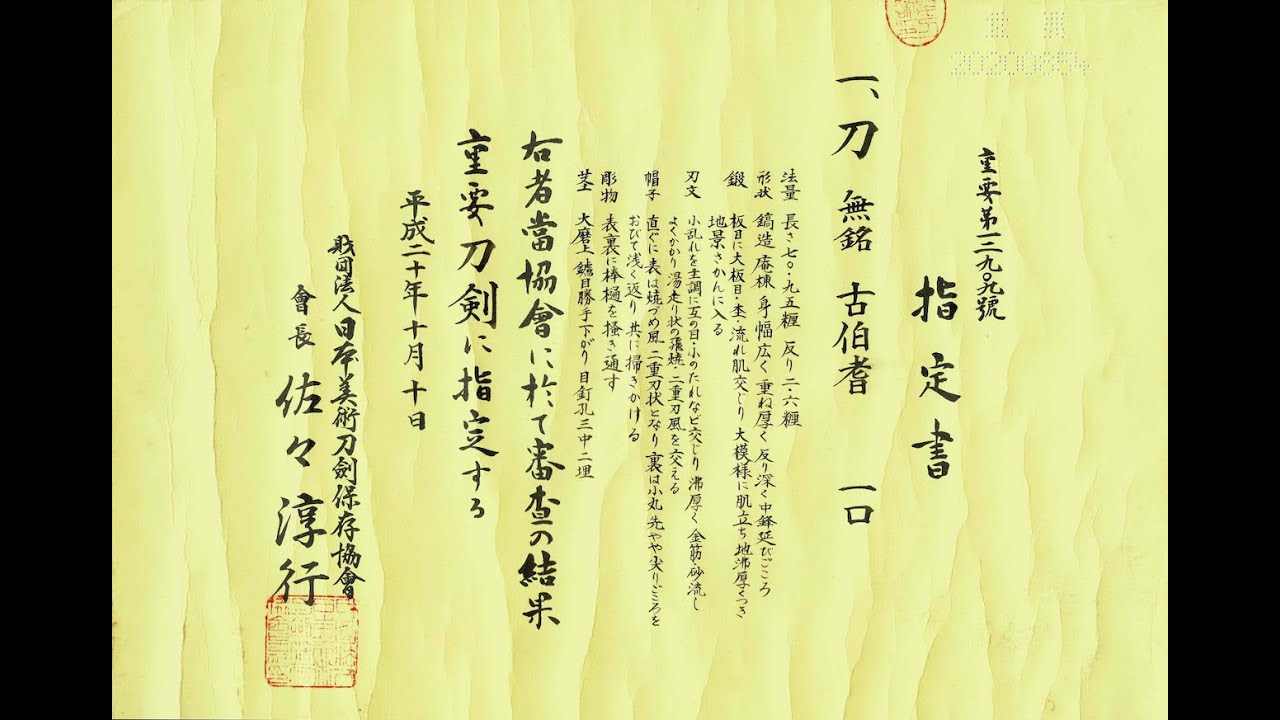 重要第一二九〇九號
指定書
一、刀 無銘 古伯耆 一口
法量 長さ七〇・九五糎 反り二・六糎
形状 鎬造 庵棟 身幅広く 重ね厚く 反り深く中鋒延びごころ
鍛 板目に大板目・杢・流れ肌交じり 大模様に肌立ち 地沸厚くつき
地景さかんに入る
刃文 小乱れを主調に互の目・小のたれなど交じり 沸厚く 金筋・砂流し
よくかかり 湯走り状の飛焼・二重刃風を交える
帽子 直ぐに表は焼づめ風 二重刃状となり 裏は小丸 先やや尖りごころを
おびて浅く返り 共に掃きかける
彫物 表裏に棒樋を掻き通す
茎 大磨上 鑢目勝手下がり 目釘孔三中二埋
右者當協會に於て審査の結果
重要刀剣に指定する
平成二十年十月十日
財団法人日本美術刀劍保存協會
會長 佐々淳行